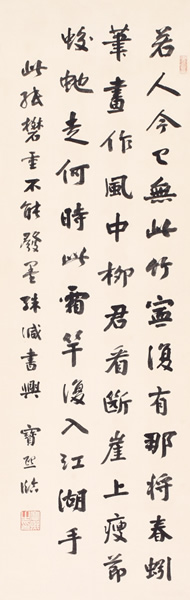 若人今已無此竹寧復有那将春蚓
筆畫作風中柳君看断崖上瘦節
蛟虵走何時此霜竿復入江湖手
此紙礬重不能發墨殊減書興 寶熙臨